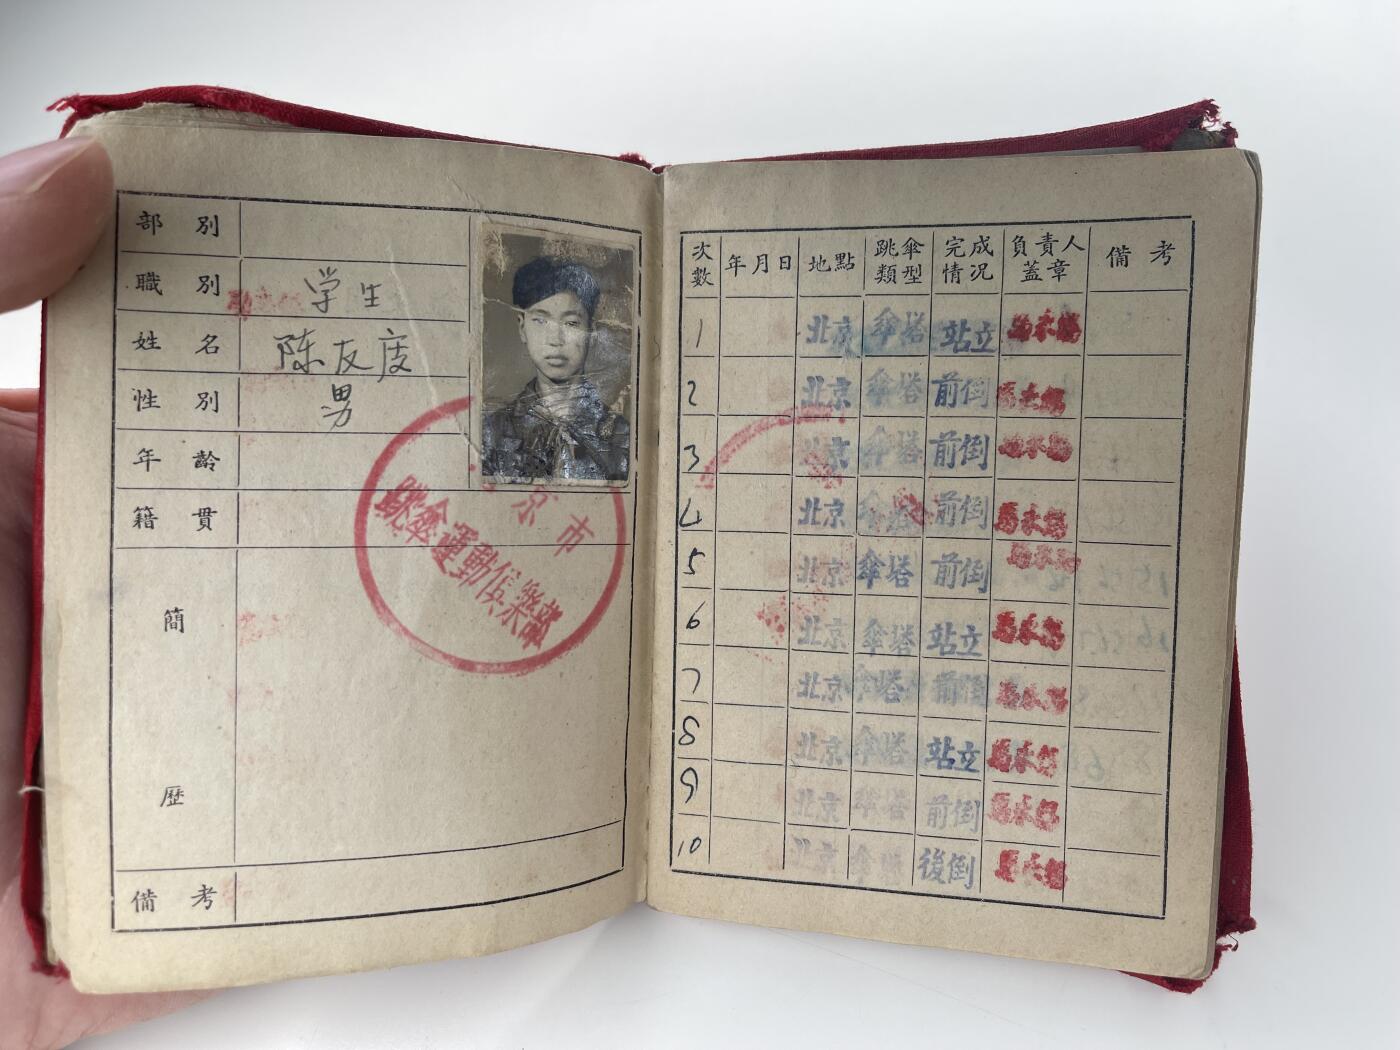 部別
職別 学生
姓名 陈友度
性別 男
年齡
籍貫
簡歷
備考
京市
跳傘運動俱樂部
次數 年月日 地點 跳傘類型 完成情况 負責人蓋章 備考
1 北京 傘塔 站立
2 北京 傘塔 前倒
3 北京 傘塔 前倒
4 北京 傘塔 前倒
5 北京 傘塔 前倒
6 北京 傘塔 站立
7 北京 傘塔 前倒
8 北京 傘塔 站立
9 北京 傘塔 前倒
10 北京 傘塔 後倒